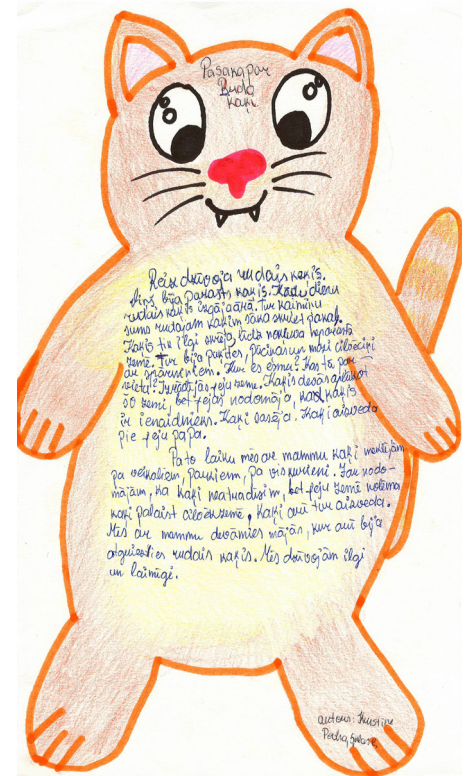 Pasaka par
Rudo
kaķi
Reiz dzīvoja rudais kaķis.
Viņš bija parasts kaķis. Kādu dienu
rudais kaķis izgāja ārā. Tur kaimiņu
suns rudajam kaķim sāka skriet pakaļ.
Kaķis tik ilgi skrēja, līdz nokļuva neparastā
zemē. Tur bija puķītes, pūciņas un mazi cilvēciņi
ar spārniņiem. Kur es esmu? Kas tā par
vietu? Izrādījās feju zeme. Kaķis devās aplūkot
šo zemi, bet fejas nodomāja, ka kaķis
ir ienaidnieks. Kaķi sasēja. Kaķi aizveda
pie feju papa.
Pa to laiku mēs ar mammu kaķi meklējām
pa veikaliem, parkiem, pa visurieni. Jau nodo-
mājām, ka kaķi neatradīsim, bet feju zemē nolēma
kaķi palaist cilvēkzemē, kaķi arī tur aizveda.
Mēs ar mammu devāmies mājās, kur arī bija
atgriezies rudais kaķis. Mēs dzīvojām ilgi
un laimīgi.
autors: Kristīne